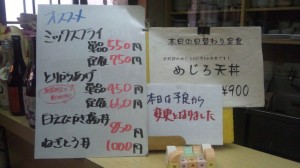 オススメ
ミックスフライ
単品 550円
定食 750円
とりからあげ
単品 450円
定食 650円
850円
ねぎとろ丼 1000円
本日の日替わり定食
めじろ天丼
¥900
本日は予定から
変更となりました